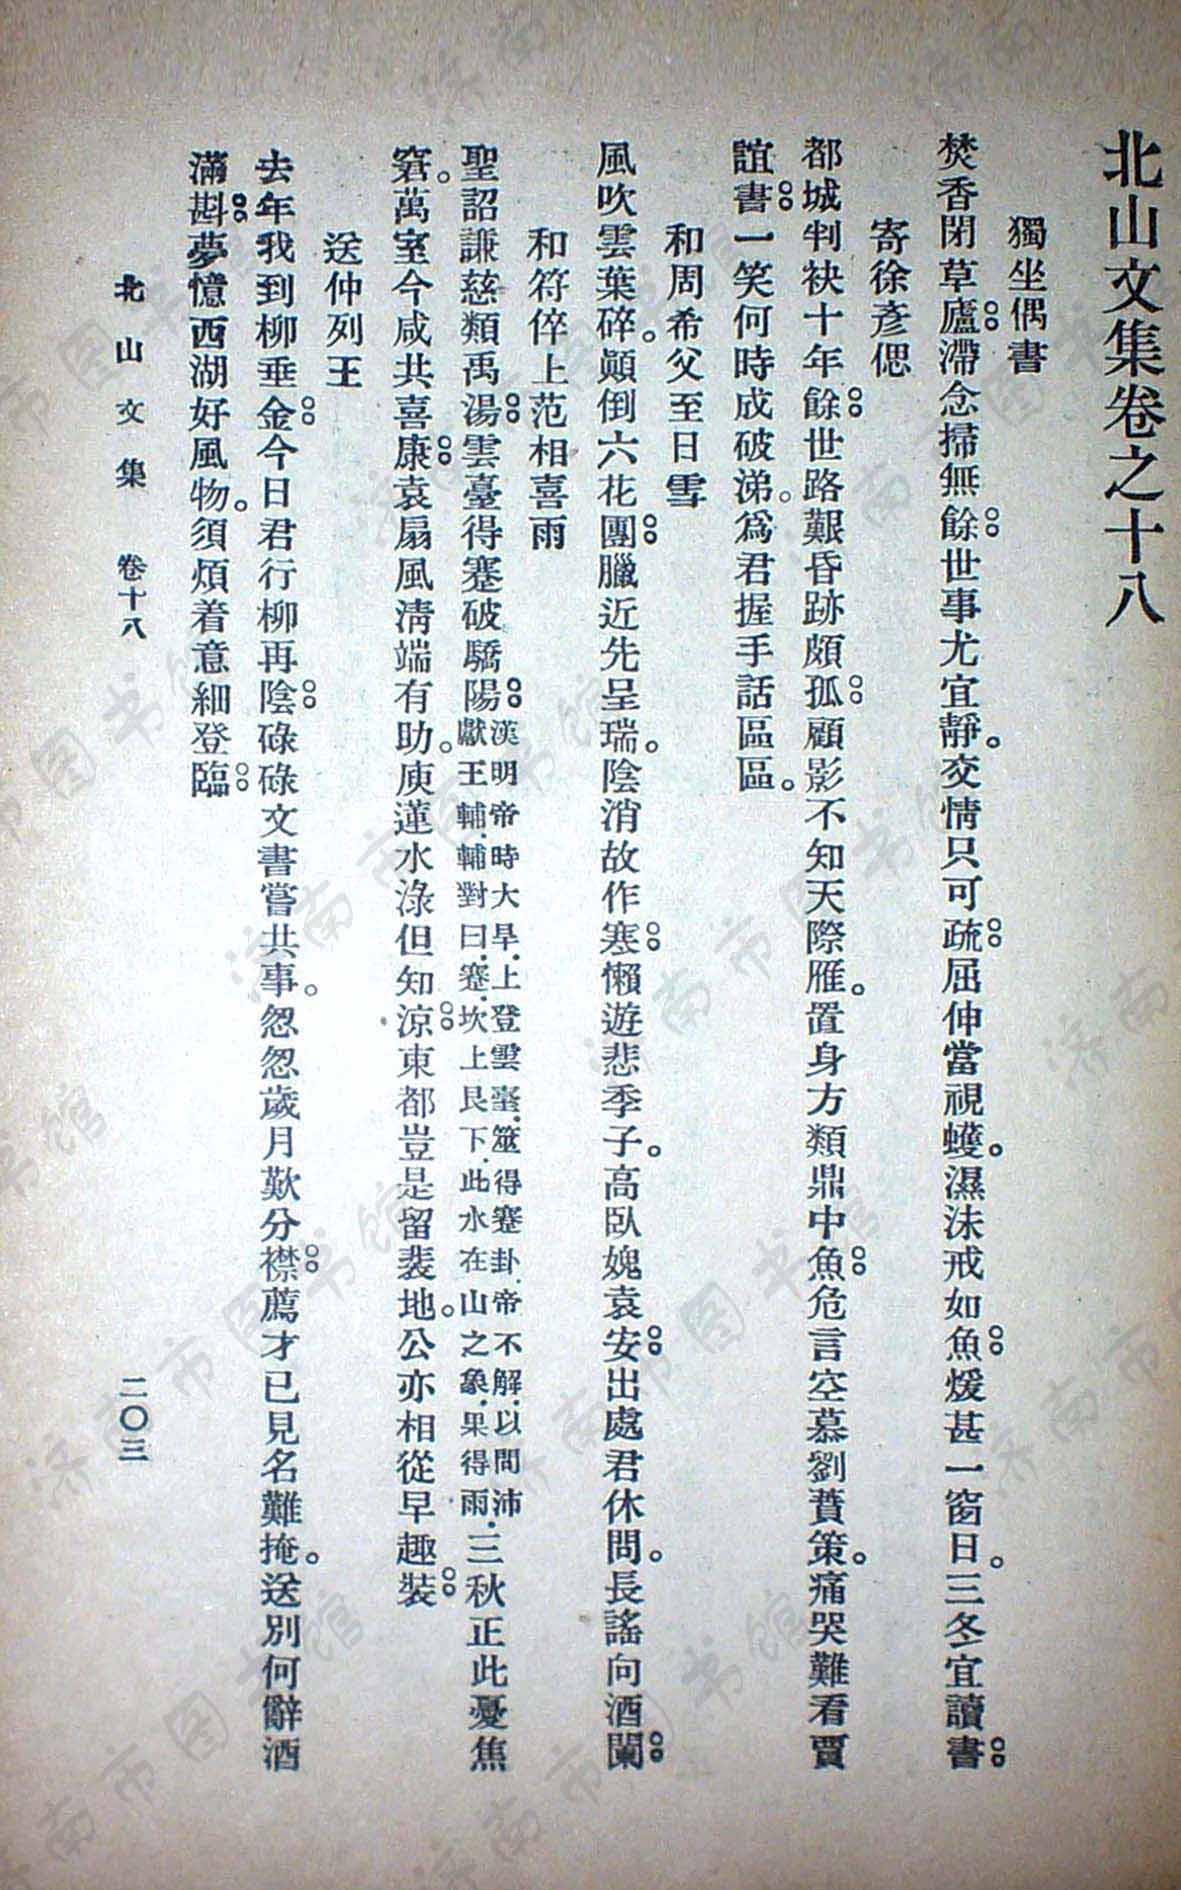 北山文集卷之十八
獨坐偶書
焚香閉草廬滯念掃無餘世事尤宜靜。交情只可疏屈伸當視蠖。濕沫戒如魚煖甚一窗日。三冬宜讀書
寄徐彥偲
都城判袂十年餘世路艱昏跡頗孤顧影不知天際雁。置身方類鼎中魚危言空慕劉蕡策。痛哭難看賈
誼書一笑何時成破涕。爲君握手話區區。
和周希父至日雪
風吹雲葉碎。顛倒六花團臘近先呈瑞。陰消故作寒懶遊悲季子。高臥媿袁安出處君休問。長謠向酒闌
和符倅上范相喜雨
聖詔謙慈類禹湯雲臺得蹇破驕陽漢明帝時大旱.上登雲臺.筮得蹇卦.帝不解.以問沛獻王輔.輔對曰.蹇.坎上艮下.此水在山之象.果得雨.三秋正此憂焦
窘。萬室今咸共喜康袁扇風清端有助。庾蓮水淥但知涼東都豈是留裴地。公亦相從早趣裝
送仲列王
去年我到柳垂金今日君行柳再陰碌碌文書嘗共事。忽忽歲月歎分襟薦才已見名難掩。送別何辭酒
滿斟夢憶西湖好風物。須煩着意細登臨
北山文集 卷十八 二〇三
济南市图书馆